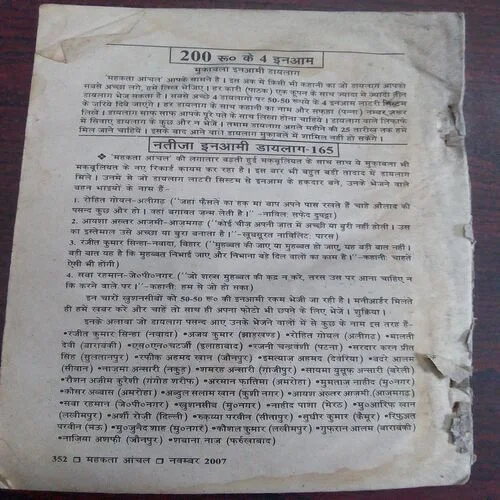 200 रू० के 4 इनआम
मुकाबला इनआमी डायलाग
'महकता आंचल' आपके सामने है। इस अंक में किसी भी कहानी का जो डायलाग आपको
सबसे अच्छा लगे, हमें लिख भेजिए। हर कारी (पाठक) एक कूपन के साथ ज्यादा से ज्यादा तीन
डायलाग भेज सकता है। सबसे अच्छे 4 डायलागों पर 50-50 रूपये के 4 इनआम लाटरी सिस्टम
के जरिये दिये जाएंगे। हर डायलाग के साथ कहानी का नाम और सफहा (पन्ना) नम्बर जरूर
लिखें। डायलाग साफ साफ आपके पूरे पते के साथ लिखा होना चाहिये। डायलाग वाले लिफाफे
में सिवाए डायलाग के कुछ और न भेजें। तमाम डायलाग अगले महीने की 25 तारीख तक हमें
मिल जाने चाहियें। इसके बाद आने वाले डायलाग मुकाबले में शामिल नहीं हो सकेंगे।
नतीजा इनआमी डायलाग-165
❖ 'महकता आंचल' की लगातार बढ़ती हुई मकबूलियत के साथ साथ ये मुकाबला भी
मकबूलियत के नए रिकार्ड कायम कर रहा है। इस बार भी बहुत बड़ी तादाद में डायलाग
मिले। उनमें से जो डायलाग लाटरी सिस्टम से इनआम के हकदार बने, उनके भेजने वाले
बहन भाइयों के नाम हैं-
1. रोहित गोयल-अलीगढ़ (''जहां फैसले का हक मां बाप अपने पास रखते हैं चाहे औलाद की
पसन्द कुछ और हो। वहां बगावत जन्म लेती है।'' -नाविल सफेद दुपट्टा)
2. आयशा अख्तर आजमी-आजमगढ़ (''कोई चीज अपनी जात में अच्छी या बुरी नहीं होती। उस
का इस्तेमाल उसे अच्छा या बुरा बनाता है।'' -खूबसूरत नाविलिट पारस)
3. रजीत कुमार सिन्हा-नवादा, बिहार (''मुहब्बत की जाए या मुहब्बत हो जाए, यह बड़ी बात नहीं।
बड़ी बात यह है कि मुहब्बत निभाई जाए और निभाना बड़े दिल वालों का काम है।''-कहानी चाहतें
ऐसी भी होंगी)
4. सबा रहमान-जे०पी०नगर (''जो शख्स मुहब्बत की कद्र न करे, तरस उस पर आना चाहिए न
कि करने वाले पर।''-कहानी हम से जो हो सका)
इन चारों खुशनसीबों को 50-50 रू० की इनआमी रकम भेजी जा रही है। मनीआर्डर मिलते
ही हमें खबर करें और चाहें तो साथ ही अपना फोटो भी छपने के लिए भेजें। शुक्रिया।
इनके अलावा जो डायलाग पसन्द आए उनके भेजने वालों में से कुछ के नाम इस तरह हैं-
•रजीत कुमार सिन्हा (नवादा) •अजय कुमार (झाड़खण्ड) •रोहित गोयल (अलीगढ़) •मालती
देवी (बाराबकी) •एस०एन०चटर्जी (इलाहाबाद) •रजनी चन्द्रवंशी (पटना) •सरदार करन प्रीत
सिंह (सुलतानपुर) •रफीक अहमद खान (जौनपुर) •इमत्याज अहमद (देवरिया) •बदरे आलम
(सीवान) •नाजमा अन्सारी (नकुड़) •शमरह अन्सारी (गाजीपुर) •सायमा युसूफ अन्सारी (बरेली)
•रौशन अजीम कुरैशी (गंगोह शरीफ) •अरमान फातिमा (अमरोहा) •मुमताज नाहीद (मु०नगर)
•कौसर अब्बास (अमरोहा) •अब्दुल सलाम खान (कुशी नगर) •आयश अख्तर आजमी (आजमगढ़)
•सबा रहमान (जे०पी०नगर) •खुशनसीब (मु०नगर) •नाहीद पाशा (मेरठ) •मु०आरिफ खान
(लखीमपुर) •अर्शी रोजी (दिल्ली) •रूकय्या परवीन (सीतापुर) •सुधीर कुमार (कैमूर) •रिफअत
परवीन (मऊ) •मु०जुनैद शाह (मु०नगर) •कौशल कुमार (लखीमपुर) •गुफरान आलम (बाराबकी)
•नाजिया अशफी (जौनपुर) •शबाना नाज (फर्रुखाबाद)
352 ❑ महकता आंचल ❑ नवम्बर 2007